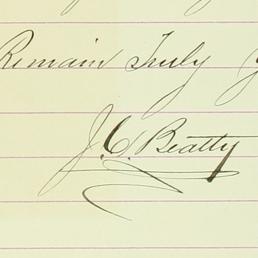 Remain Truly
J. C. Beatty